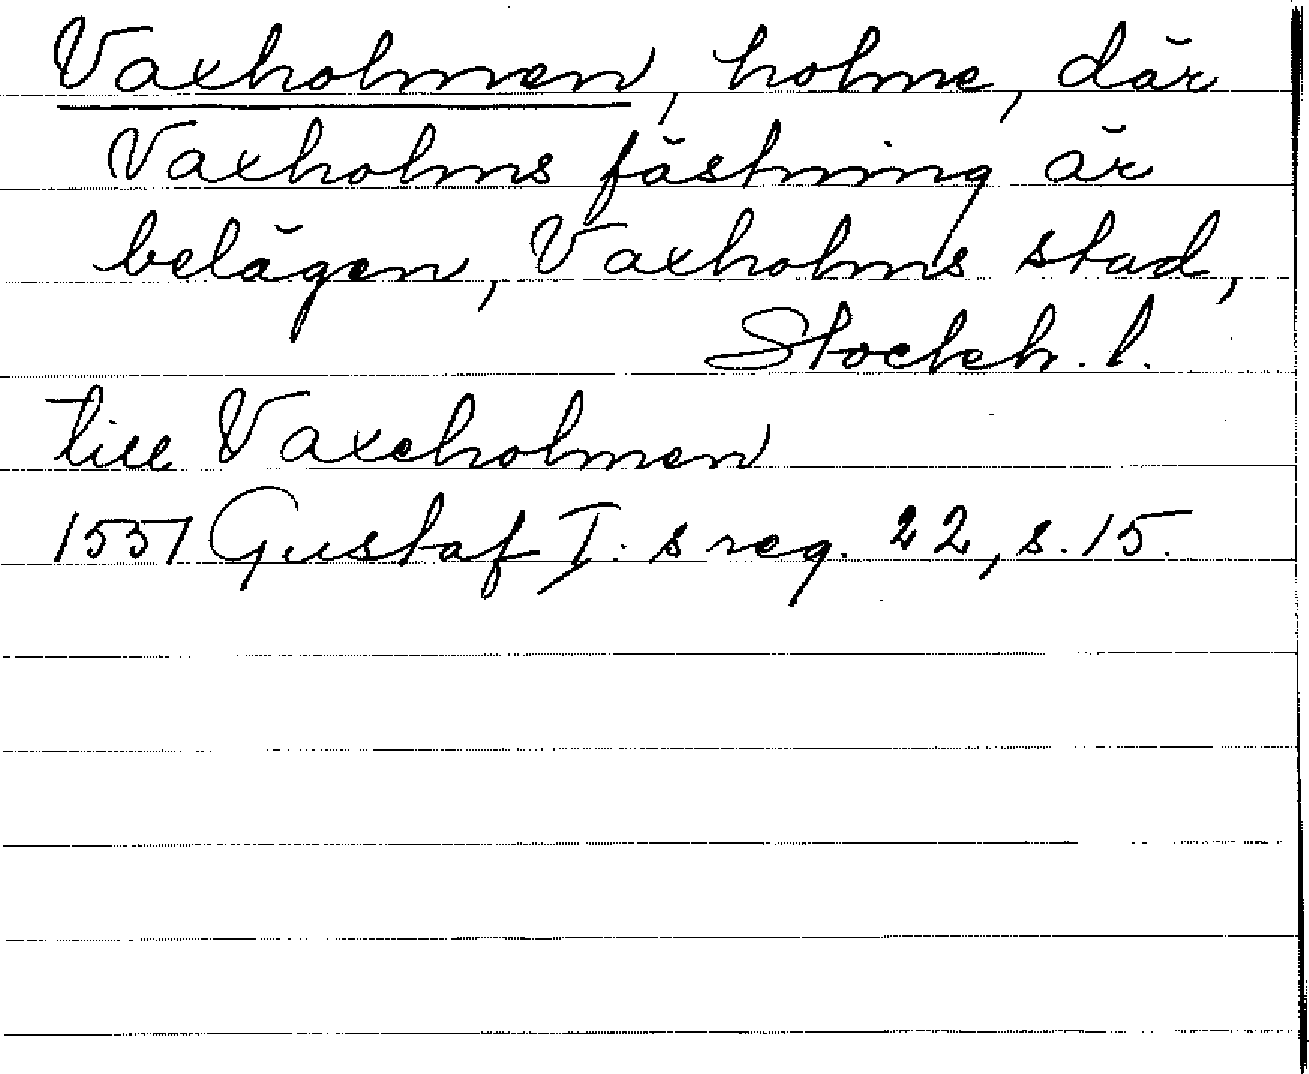 Vaxholmen, holme, där
Vaxholms fästning är
belägen, Vaxholms stad,
Stockh. l.
till Vaxeholmen
1551 Gustaf I:s reg. 22, s. 15.